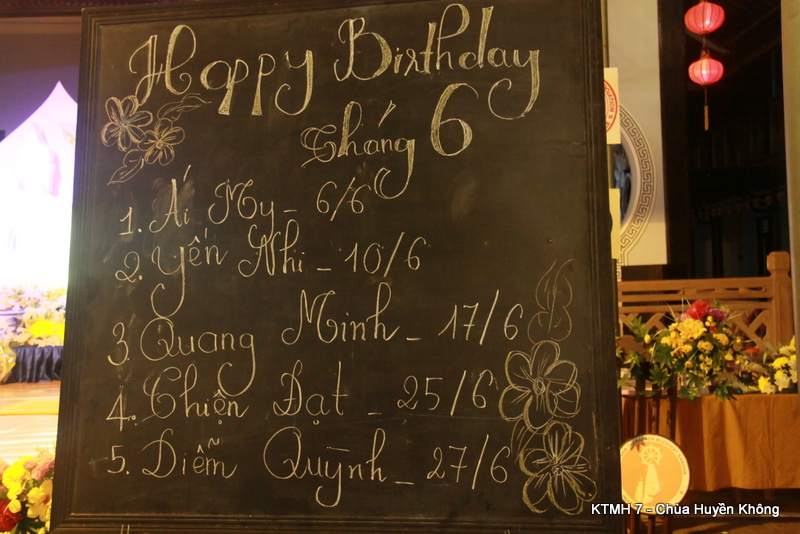 Happy Birthday
Tháng 6
1. Ái My - 6/6
2. Yến Nhi - 10/6
3. Quang Minh - 17/6
4. Thiện Đạt - 25/6
5. Diễm Quỳnh - 27/6
KTMH 7 - Chùa Huyền Không